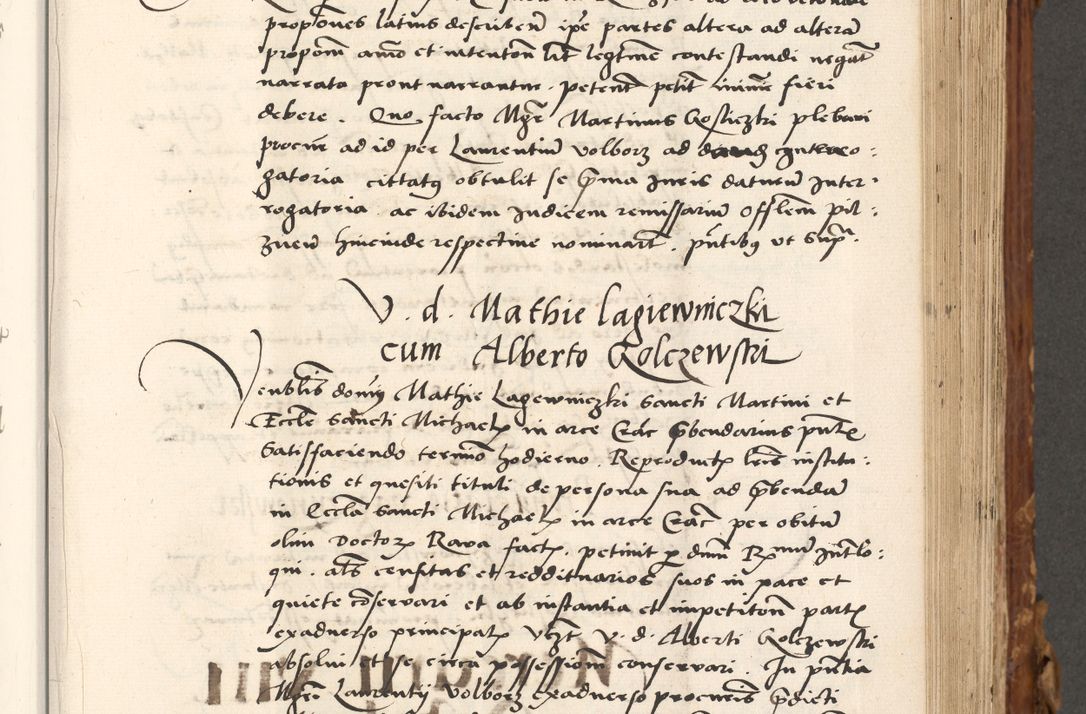 propones latius describen ipse partes altera ad altera
propom animo et intenton lit legtime contestandi negat
narrata prout narrantur. petent petit fieri
debere. Quo facto Mgr Martinus Gosliczki plebani
procur ad id per Laurentiu Volborz ad
gatoria cittatus obtulit se prima Juris daturu Inter-
rogatoria. ac ibidem Judicem remissariu Offlem pil:
znen hincinde respective nominart. pntibus ut supra.
V. d. Mathie Lagiewniczki
cum Alberto Golczewski
Venblis domus Mathie Lagewniczki Sancti Martini et
Eccle Sancti Michaelis in arce Crac pbendarius pnte
Satisfaciendo termino hodierno. Reproductis lris institu:
tionis et quesiti tituli de persona sua ad pbenda
in Eccla Sancti Michaelis in arce Crac per obitu
olim Doctoris Rawa factis. petiuit p dnm Rmum Intlo:
qui. als censitas et reddituarios suos in pace et
quiete conservari et ab instantia et impetiton partis
exadverso principalis vhzt V. d. Alberti Golczewski
absolui et se circa possession conservari. In pntia
Mgri Laurentij Volborz exadverso procuris pdicti